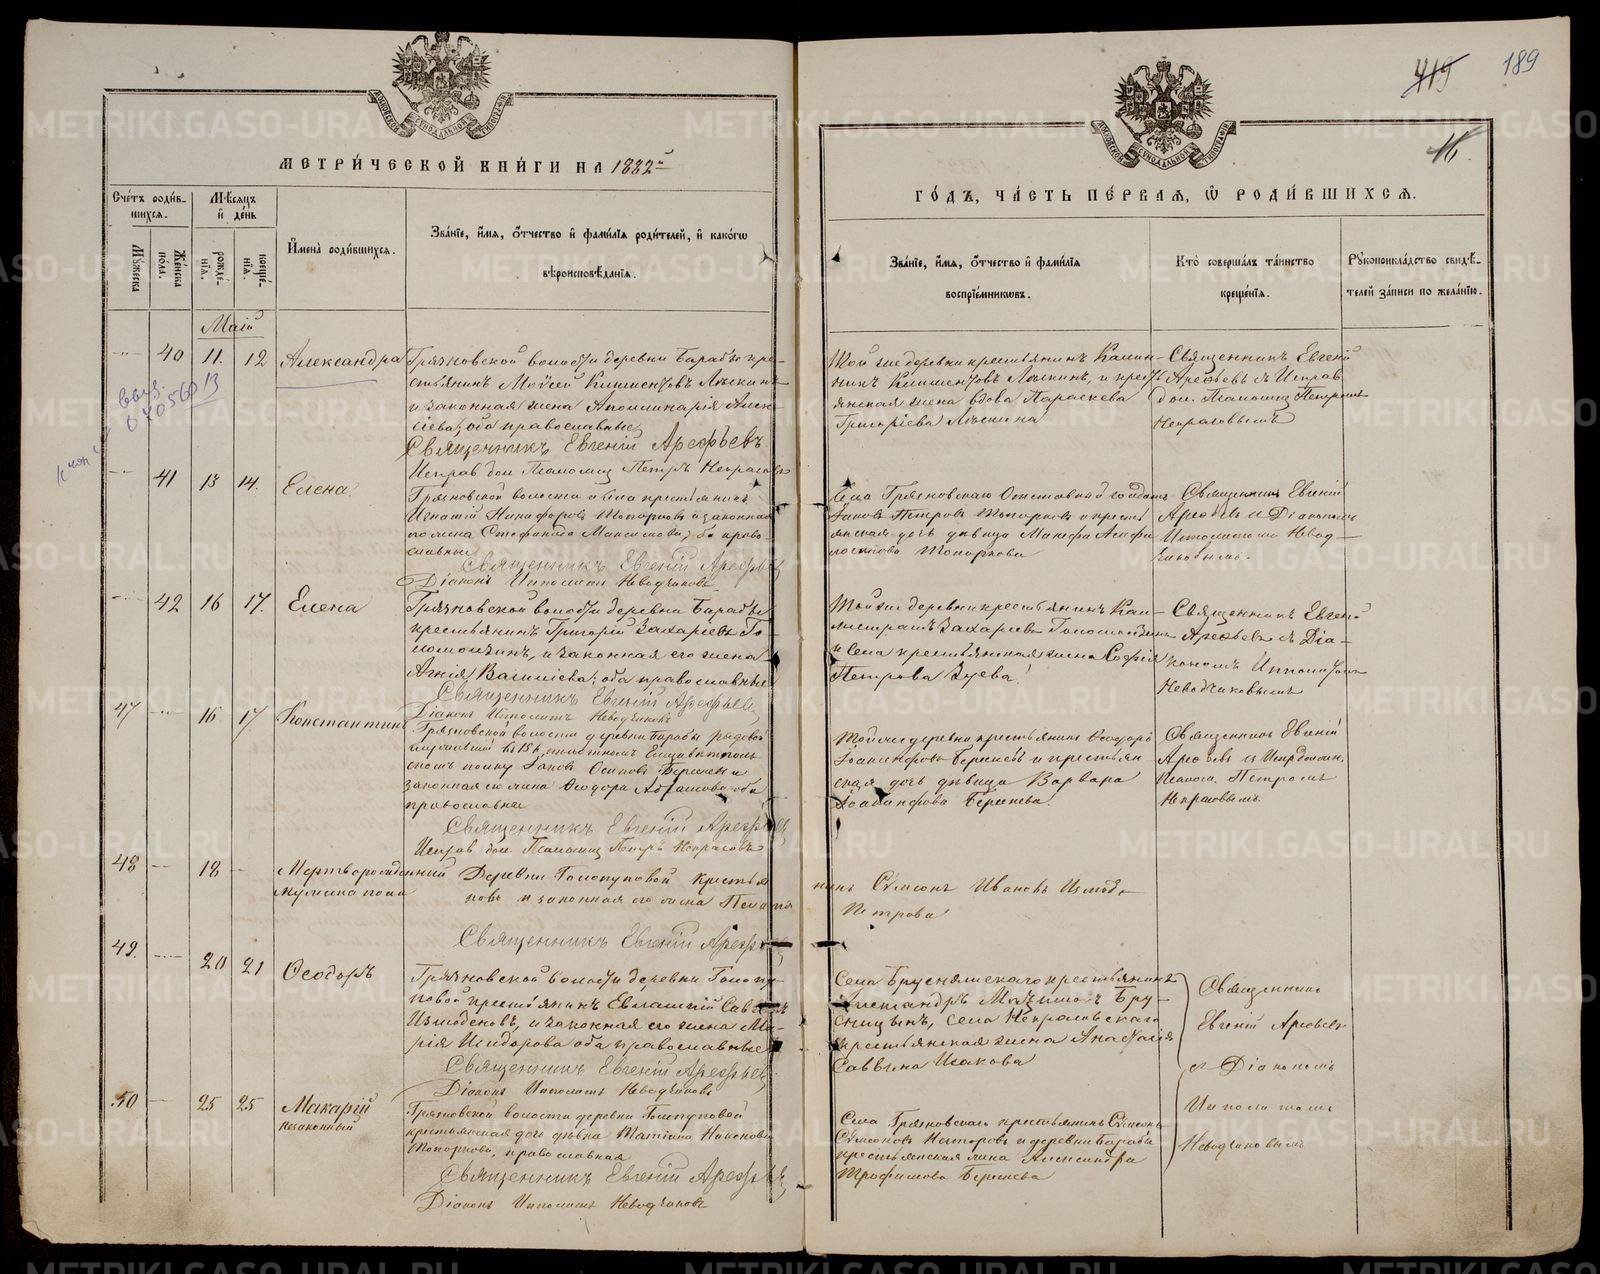 189
419
16.
МЕТРИ́ЧЕСКОЙ КНИ́ГИ НА 1882й
ГО́ДЪ, ЧА́СТЬ ПЕ́РВАЯ, Ѡ РОДИ́ВШИХСЯ.
Сче́тъ роди́в-
шихся.
Му́жеска
Же́нска
по́ла.
Мѣ́сяцъ
и де́нь
рожде́-
нія.
креще́-
нія.
Имена̀ роди́вшихся.
Зва́ніе, и́мя, о́тчество и фами́лія роди́телей, и како́гѡ
вѣроисповѣ́данія.
Зва́ніе, и́мя, о́тчество и фами́лія
воспріе́мниковъ.
Кто̀ соверша́лъ та́инство
креще́нія.
Рукоприкла́дство свидѣ́-
телей за́писи по жела́нію.
Маій
40 11. 12 Александра
Грязновской волости деревни Барабы кре-
стьянинъ Моѵсей Климентовъ Лыскинъ
и законная жена Аполлинарія Алек-
сіева, оба православные
Священникъ Евгеній Арефьевъ
Исправ дол. Псаломщ Петръ Некрасовъ
Той же деревни крестьянинъ
Климентовъ Лыскинъ, и кресть
янская жена вдова Параскева
Григоріева Лыскина
Священникъ Евгеній
Арефьевъ съ Исправ
дол. Псаломщ Петромъ
Некрасовымъ
41 13 14. Елена
Грязновской волости и села крестьянинъ
Игнатій Никифоровъ Топорковъ и законная
его жена Стефанида Максимова, оба право-
славные
Священникъ Евгеній Арефьев
Діаконъ Ипполитъ Неводчиковъ
Села Грязновскаго Отставной солдатъ
Іаковъ Петровъ Топорковъ и кресть
янская дочь дѣвица
Топоркова
Священникъ Евгеній
Арефьевъ съ Діакономъ
Ипполитомъ Невод-
чиковымъ.
42 16 17. Елена
Грязновской волости деревни Барабы
крестьянинъ Григорій Захаріевъ Го-
, и законная его жена
Агнія Василіева; оба православные
Священникъ Евгеній Арефьев
Діаконъ Ипполитъ Неводчиковъ
Той же деревни крестьянинъ Кал-
листратъ Захаріевъ
и Села крестьянская жена Софія
Петрова Зуева
Священникъ Евгеній
Арефьевъ съ Діа-
кономъ Ипполитомъ
Неводчиковымъ
47 16 17 Константинъ
Грязновской волости деревни Барабы рядовой
служившій въ 156 пѣхотномъ Елизаветполь
скомъ полку Іаковъ Осиповъ Берсеневъ и
законная его жена Ѳеодора оба
православные
Священникъ Евгеній Арефьев
Исправ дол. Псаломщ Петръ Некрасовъ
Той же деревни крестьянинъ Ѳеодоръ
Берсеневъ и крестьян
ская дочь дѣвица Варвара
Берсенева.
Священникъ Евгеній
Арефьевъ съ Испр.
Псалом. Петромъ
Некрасовымъ
48 18 Мертворожденный
мужска пола
Деревни Голопуповой крестья
нинъ Сѵмеонъ Ивановъ Измоде
новъ и законная его жена Пелагія
Петрова
Священникъ Евгеній Арефьев
49. 20 21 Ѳеодоръ
Грязновской волости деревни Голопу-
повой крестьянинъ Евлампій Саввинъ
Измоденовъ, и законная его жена Ма-
рія Исидорова оба православные
Священникъ Евгеній Арефьев
Діаконъ Ипполитъ Неводчиковъ
Села Бруснянскаго крестьянинъ
Александръ Бру-
сницынъ, села Некрасовскаго
крестьянская жена Анастасія
Саввина Исакова
Священникъ
Евгеній Арефьевъ
съ Діакономъ
Ипполитомъ
Неводчиковымъ
50 25 25 Макарій
незаконный
Грязновской волости деревни Голопуповой
крестьянская дочь дѣвка Татіана
Топоркова, православная
Священникъ Евгеній Арефьев
Діаконъ Ипполитъ Неводчиковъ
Села Грязновскаго крестьянинъ Сѵмеонъ
Сѵмеоновъ Несторовъ и деревни Барабы
крестьянская жена Александра
Трофимова Берсенева
METRIKI.GASO-URAL.RU